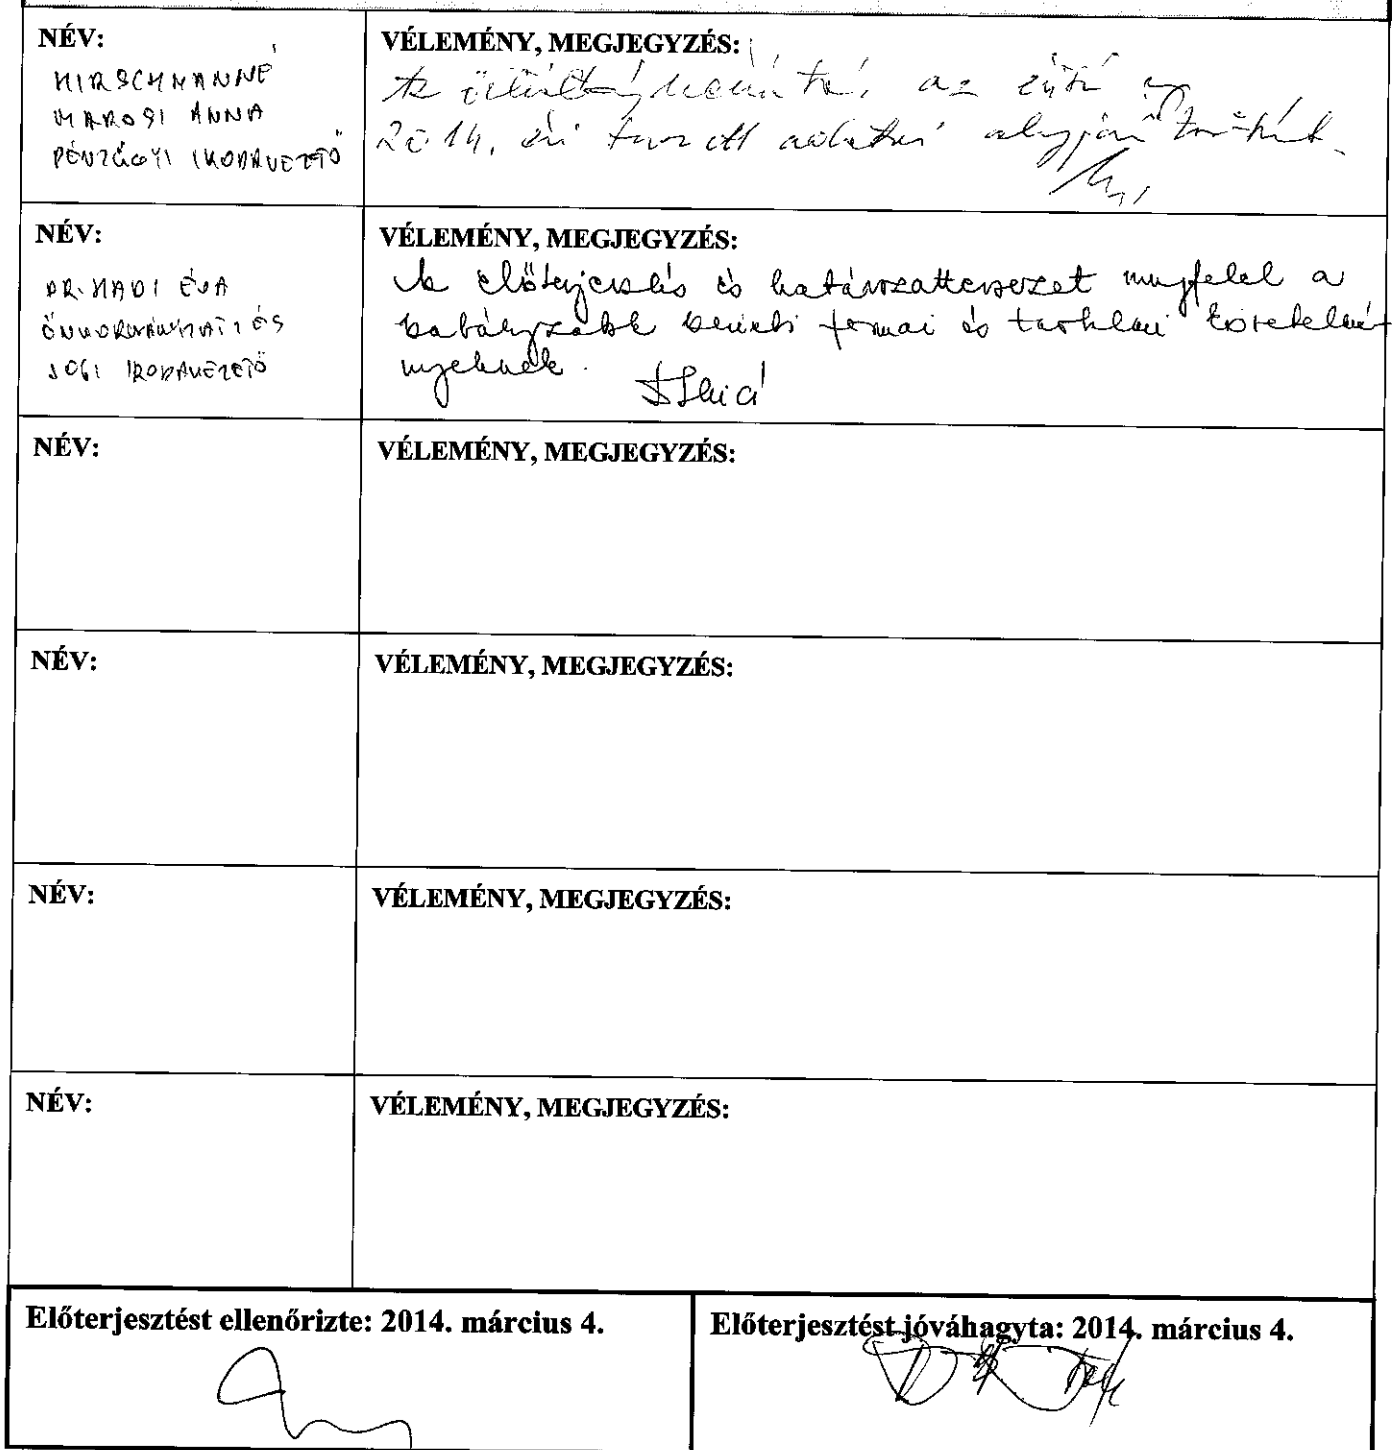 NÉV:
VÉLEMÉNY, MEGJEGYZÉS:
HIRSCHMANNÉ
MAROSI ÁNNA
PÉNZÜGYI IRODAVEZETŐ
az
2014. évi alapján
NÉV:
VÉLEMÉNY, MEGJEGYZÉS:
DR. HADI ÉVA
ÖNKORMÁNYZATI ÉS
JOGI IRODAVEZETŐ
Az előterjesztés és határozattervezet megfelel a
szabályzatok szerinti formai és tartalmi követelmé-
nyeknek.
NÉV:
VÉLEMÉNY, MEGJEGYZÉS:
NÉV:
VÉLEMÉNY, MEGJEGYZÉS:
NÉV:
VÉLEMÉNY, MEGJEGYZÉS:
NÉV:
VÉLEMÉNY, MEGJEGYZÉS:
Előterjesztést ellenőrizte: 2014. március 4.
Előterjesztést jóváhagyta: 2014. március 4.